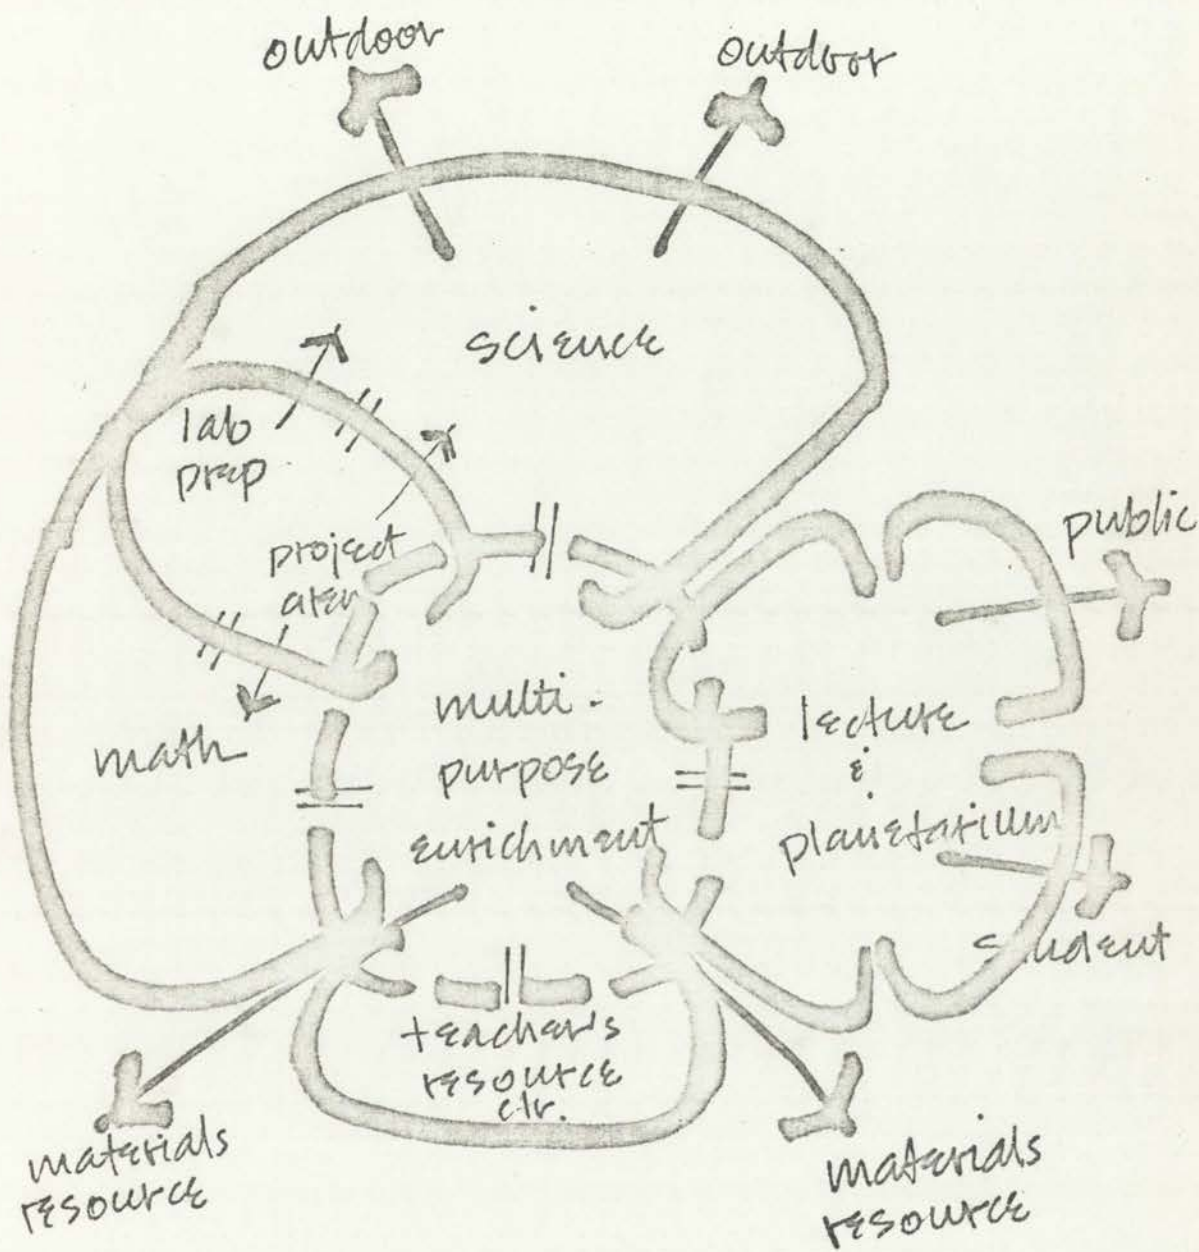 outdoor
outdoor
science
lab
prep
project
area
public
math
multi-
purpose
enrichment
lecture
&
planetarium
student
teacher's
resource
ctr.
materials
resource
materials
resource